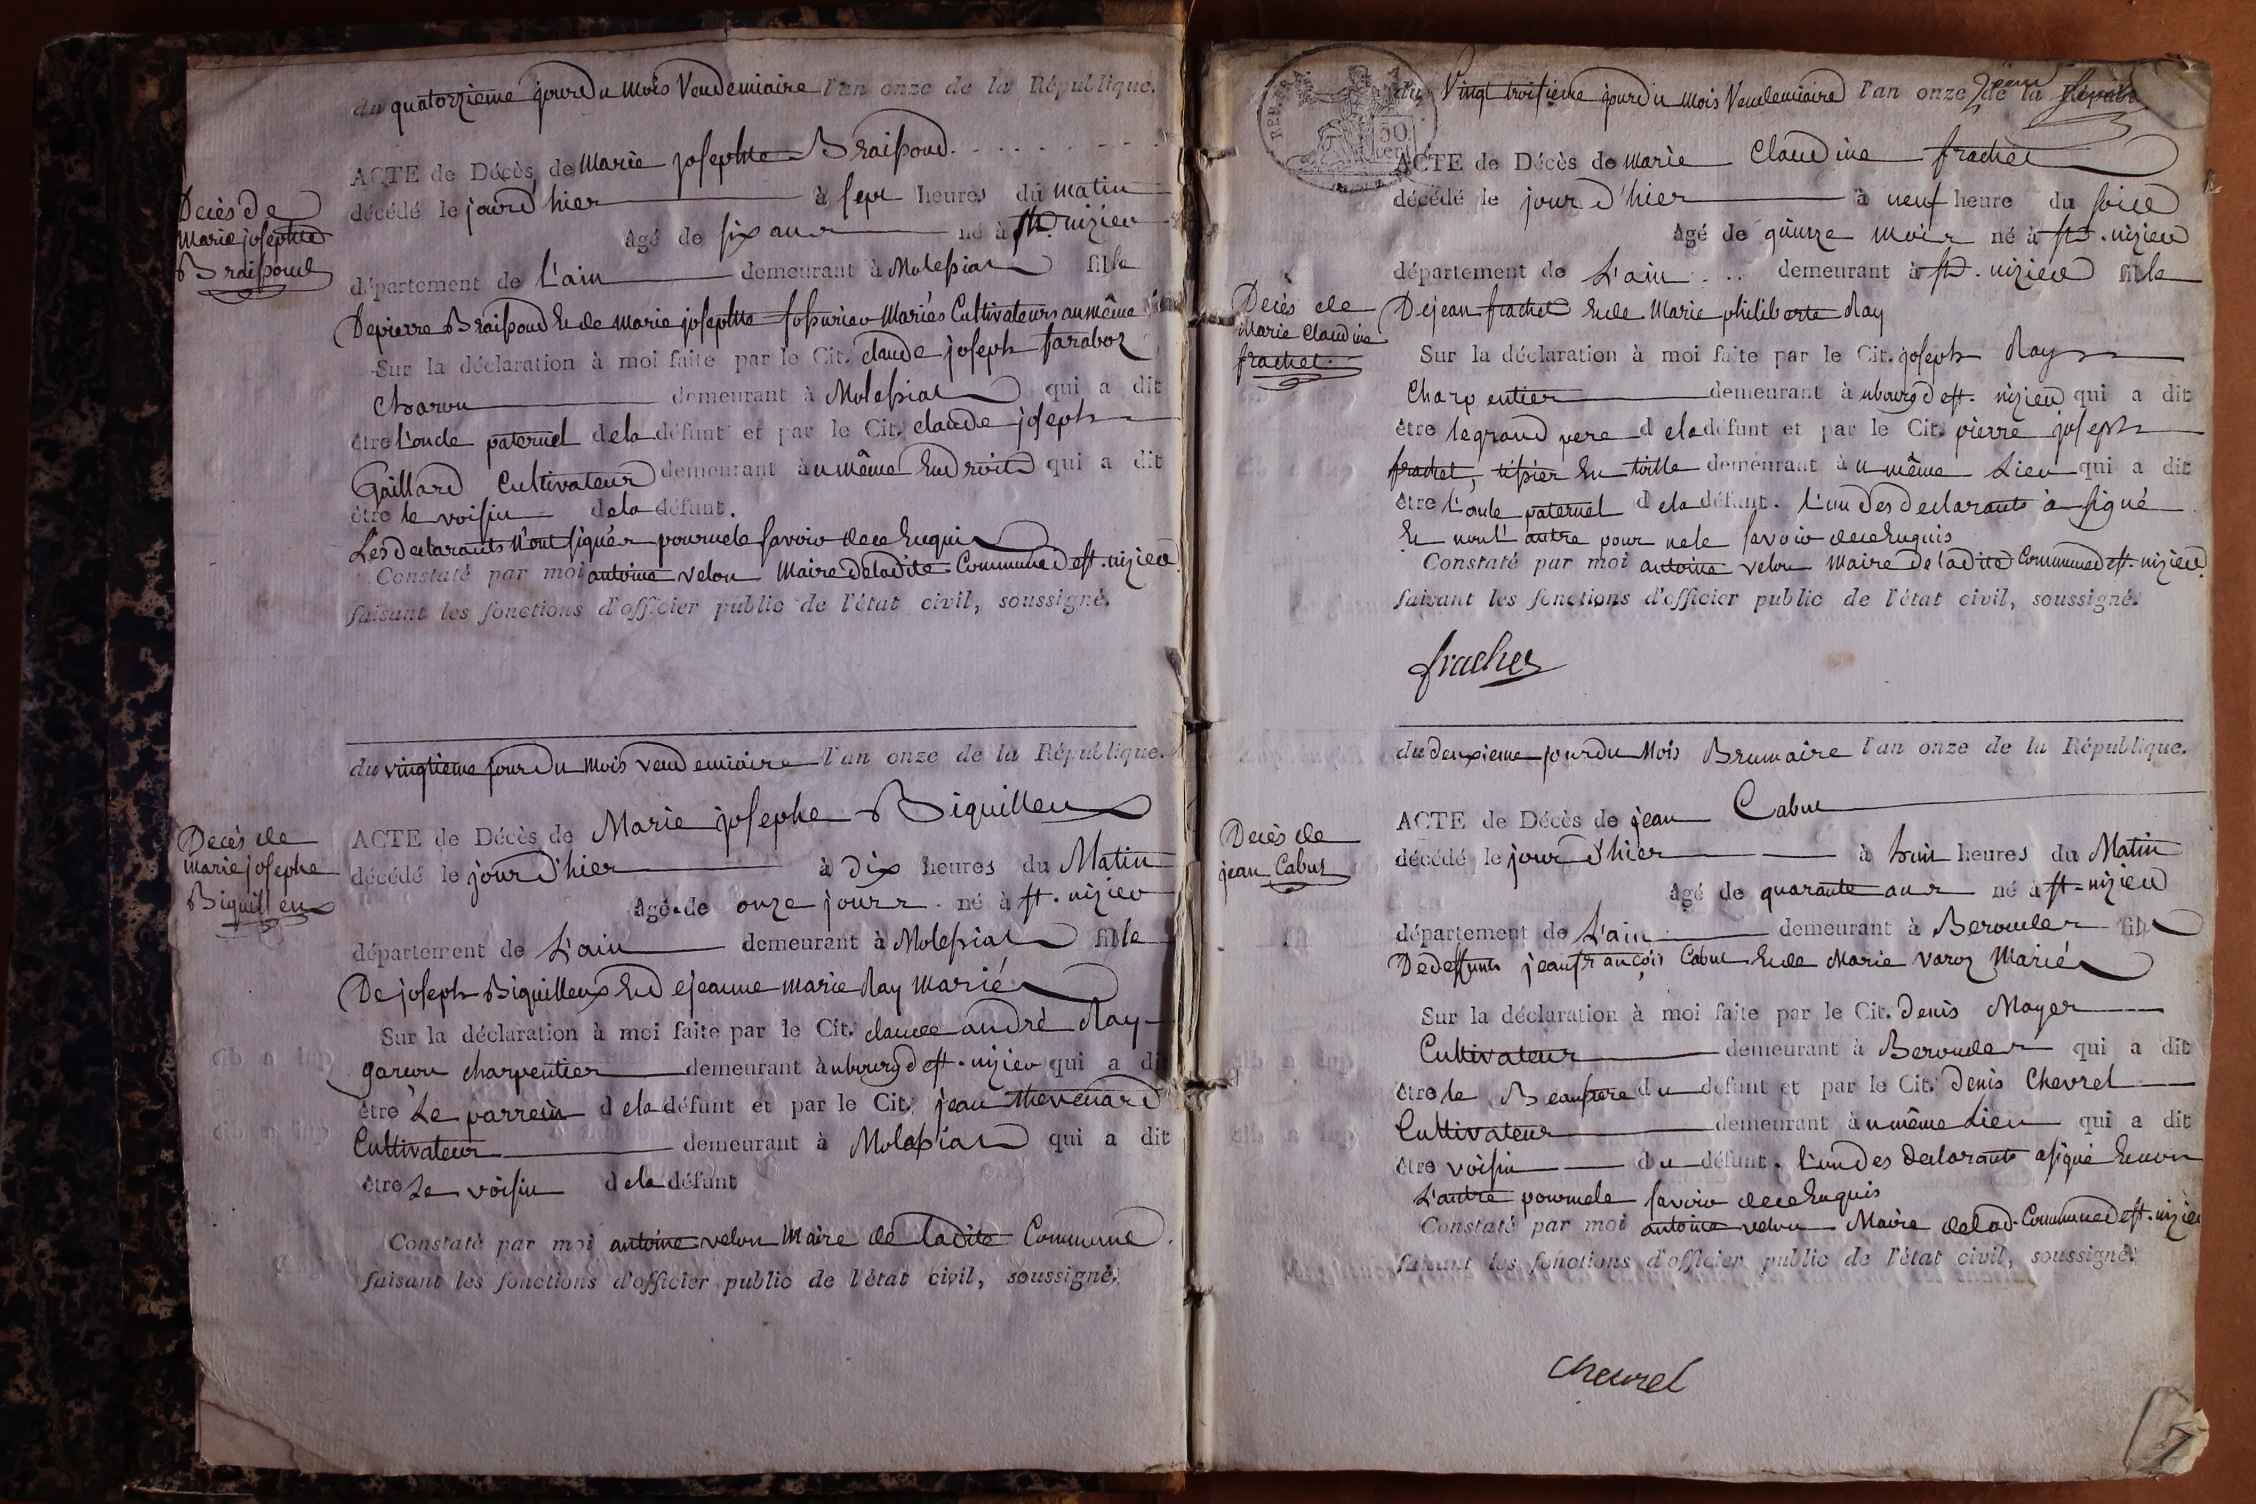 du quatorzieme jour du mois Vendemiaire l'an onze de la République.
ACTE de Décès de marie josephte Braissoud
décédé le jourd'hier à sept heures du matin
âgé de six ans né à st. nizier
département de L'ain demeurant à Molessiat fille
Décès de
Marie josephte
Braissoud
De pierre Braissoud Et de marie josephte Mariés Cultivateurs au même
Sur la déclaration à moi faite par le Cit. claude joseph faraboz
charon demeurant à Molessiat qui a dit
être L'oncle paternel de la défunt et par le Cit. claude joseph
Gaillard Cultivateur demeurant au même Endroit qui a dit
être le voisin de la défunt.
Les declarants n'ont signés pour ne le savoir de ce Enquis
Constaté par moi antoine velon Maire de ladite Commune de st. nizier
faisant les fonctions d'officier public de l'état civil, soussigné.
du vingtieme jour du mois vendemiaire l'an onze de la République.
Décès de
marie josephe
Biquilleux
ACTE de Décès de Marie josephe Biquilleux
décédé le jourd'hier à dix heures du Matin
âgé de onze jours né à st. nizier
département de L'ain demeurant à Molessiat fille
De joseph Biquilleux Et de jeanne marie Ray mariés
Sur la déclaration à moi faite par le Cit. claude andré Ray
garçon charpentier demeurant au bourg de st. nizier qui a dit
être Le parrein de la défunt et par le Cit. jean thevenard
Cultivateur demeurant à Molessiat qui a dit
être Le voisin de la défunt
Constaté par moi antoine velon Maire de ladite Commune
faisant les fonctions d'officier public de l'état civil, soussigné.
du Vingt troisieme jour du mois Vendemiaire l'an onze de la
50
ACTE de Décès de marie Claudine frachet
décédé le jourd'hier à neuf heure du soire
âgé de quinze mois né à st. nizier
département de L'ain demeurant à st. nizier fille
Décès de
Marie Claudine
frachet
De jean frachet Et de Marie philiberte Ray
Sur la déclaration à moi faite par le Cit. joseph Ray
Charpentier demeurant au bourg de st. nizier qui a dit
être le grand pere de la défunt et par le Cit. pierre joseph
frachet, tissier En toille demeurant au même Lieu qui a dit
être L'oncle paternel de la défunt. L'un des declarants à signé
Et non l'autre pour ne le savoir de ce Enquis
Constaté par moi antoine velon Maire de ladite Commune de st. nizier
faisant les fonctions d'officier public de l'état civil, soussigné.
frachet
du deuxieme jour du Mois Brumaire l'an onze de la République.
Décès de
jean Cabut
ACTE de Décès de jean Cabut
décédé le jourd'hier à huit heures du Matin
âgé de quarante ans né à st. nizier
département de L'ain demeurant à Beroudes fils
De deffunts jean françois Cabut Et de Marie varoz Mariés
Sur la déclaration à moi faite par le Cit. Denis Moyer
Cultivateur demeurant à Beroudes qui a dit
être le Beaufrere du défunt et par le Cit. Denis Chevrel
Cultivateur demeurant au même Lieu qui a dit
être voisin du défunt. l'un des declarants a signé Et non
L'autre pour ne le savoir de ce Enquis
Constaté par moi antoine velon Maire de lad. Commune de st. nizier
faisant les fonctions d'officier public de l'état civil, soussigné.
Chevrel